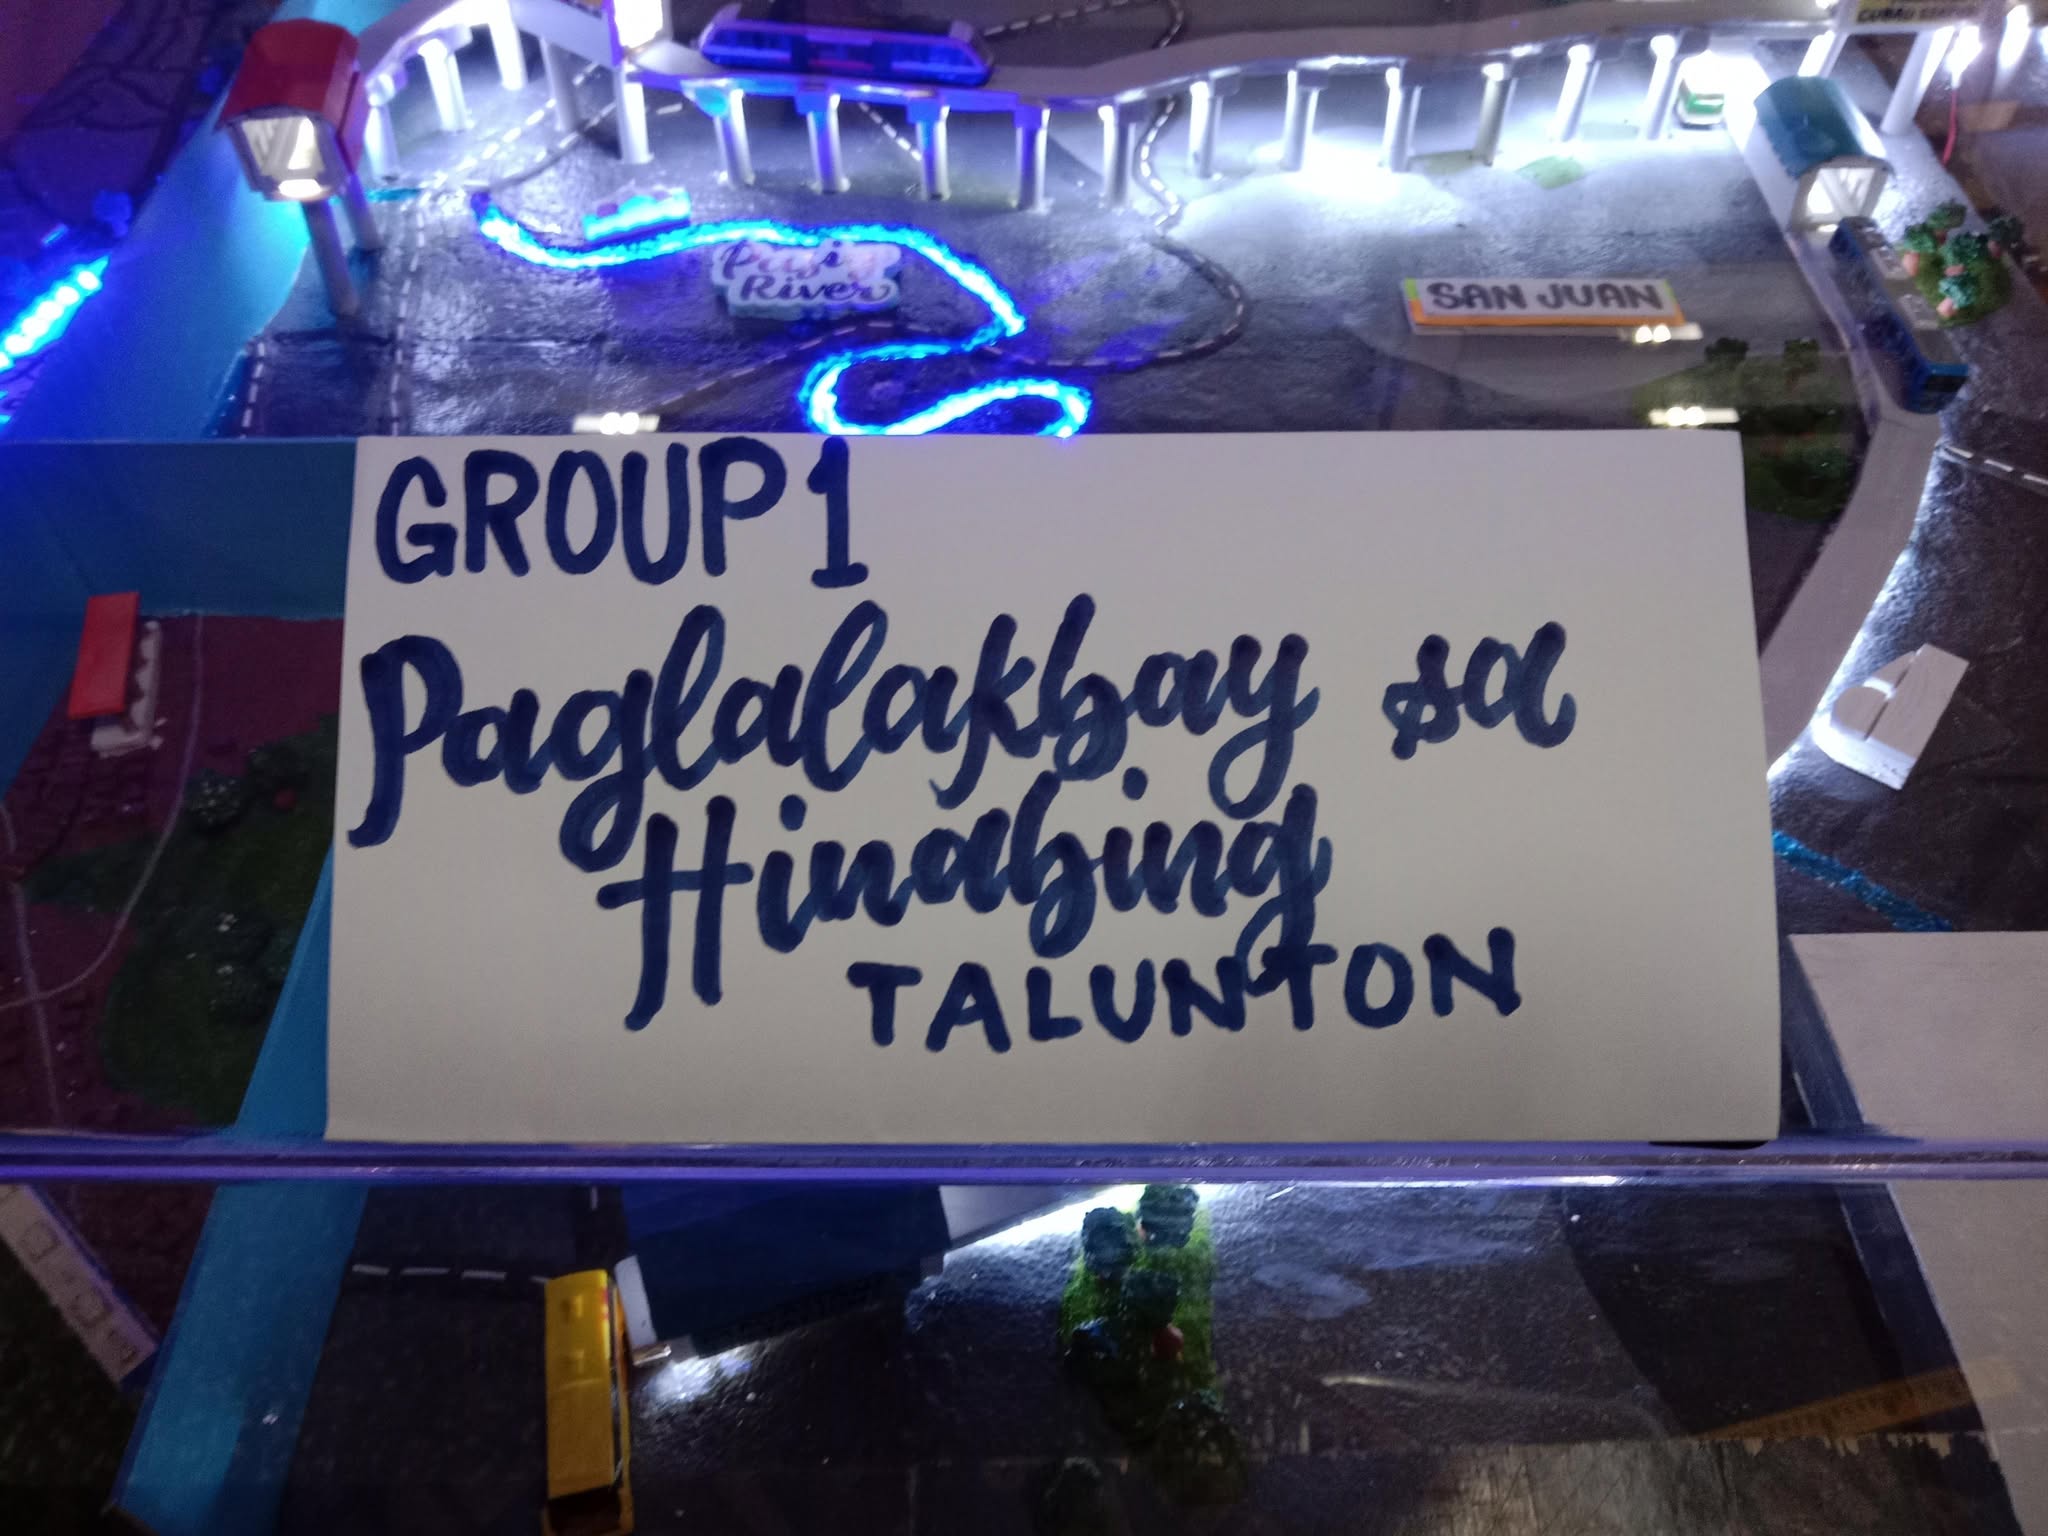 CUBAO STATION
Pasig
River
SAN JUAN
GROUP 1
Paglalakbay sa
Hinabing
TALUNTON